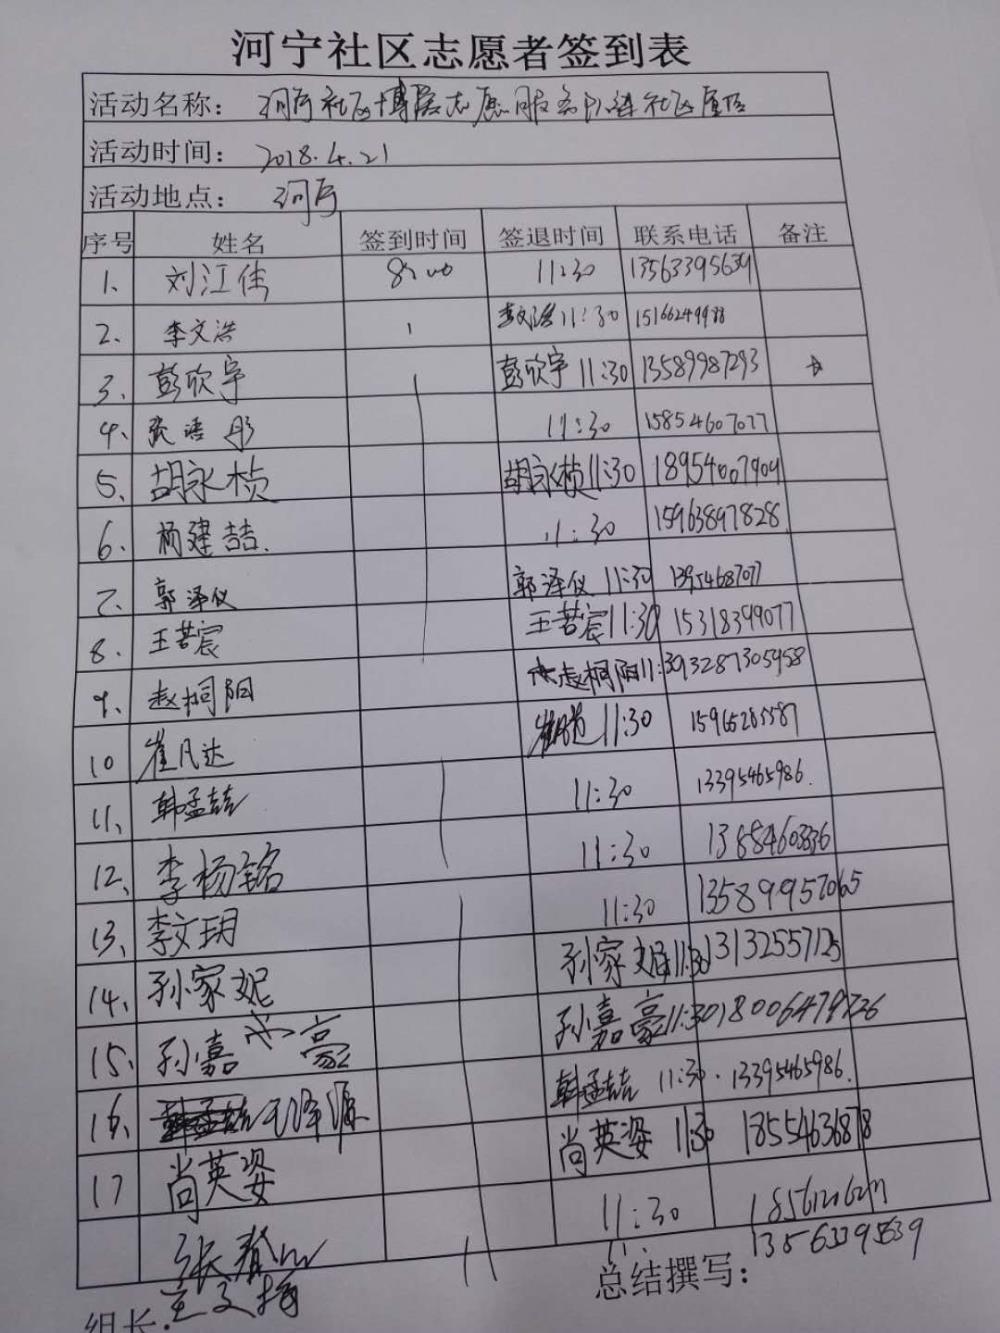 河宁社区志愿者签到表
活动名称: 河宁社区博爱志愿服务队进社区
活动时间: 2018.4.21
活动地点: 河宁
序号 姓名 签到时间 签退时间 联系电话 备注
1、 刘江伟 8:00 11:30 13563395639
2、 李文浩 李文浩 11:30 15166249988
3、 彭欣宇 彭欣宇 11:30 13589987293
4、 张语彤 11:30 15854607077
5、 胡永桢 胡永桢 11:30 18954007904
6、 杨建喆. 11:30 15963897828
7、 郭泽仪 郭泽仪 11:30 13954687077
8、 王若宸 王若宸 11:30 15318399077
9、 赵桐阳 赵桐阳 11:30 13287305958
10 崔凡达 11:30
11、 韩孟喆 11:30 13395465986.
12、 李杨铭 11:30
13、 李文玥 11:30 13589957065
14、 孙家妮 孙家妮 11:30 13132557125
15、 孙嘉豪 孙嘉豪 11:30 18006479726
16、 韩孟喆 11:30. 13395465986.
17 尚英姿 尚英姿 11:30 18554636878
11:30
组长:
总结撰写: 13563395639